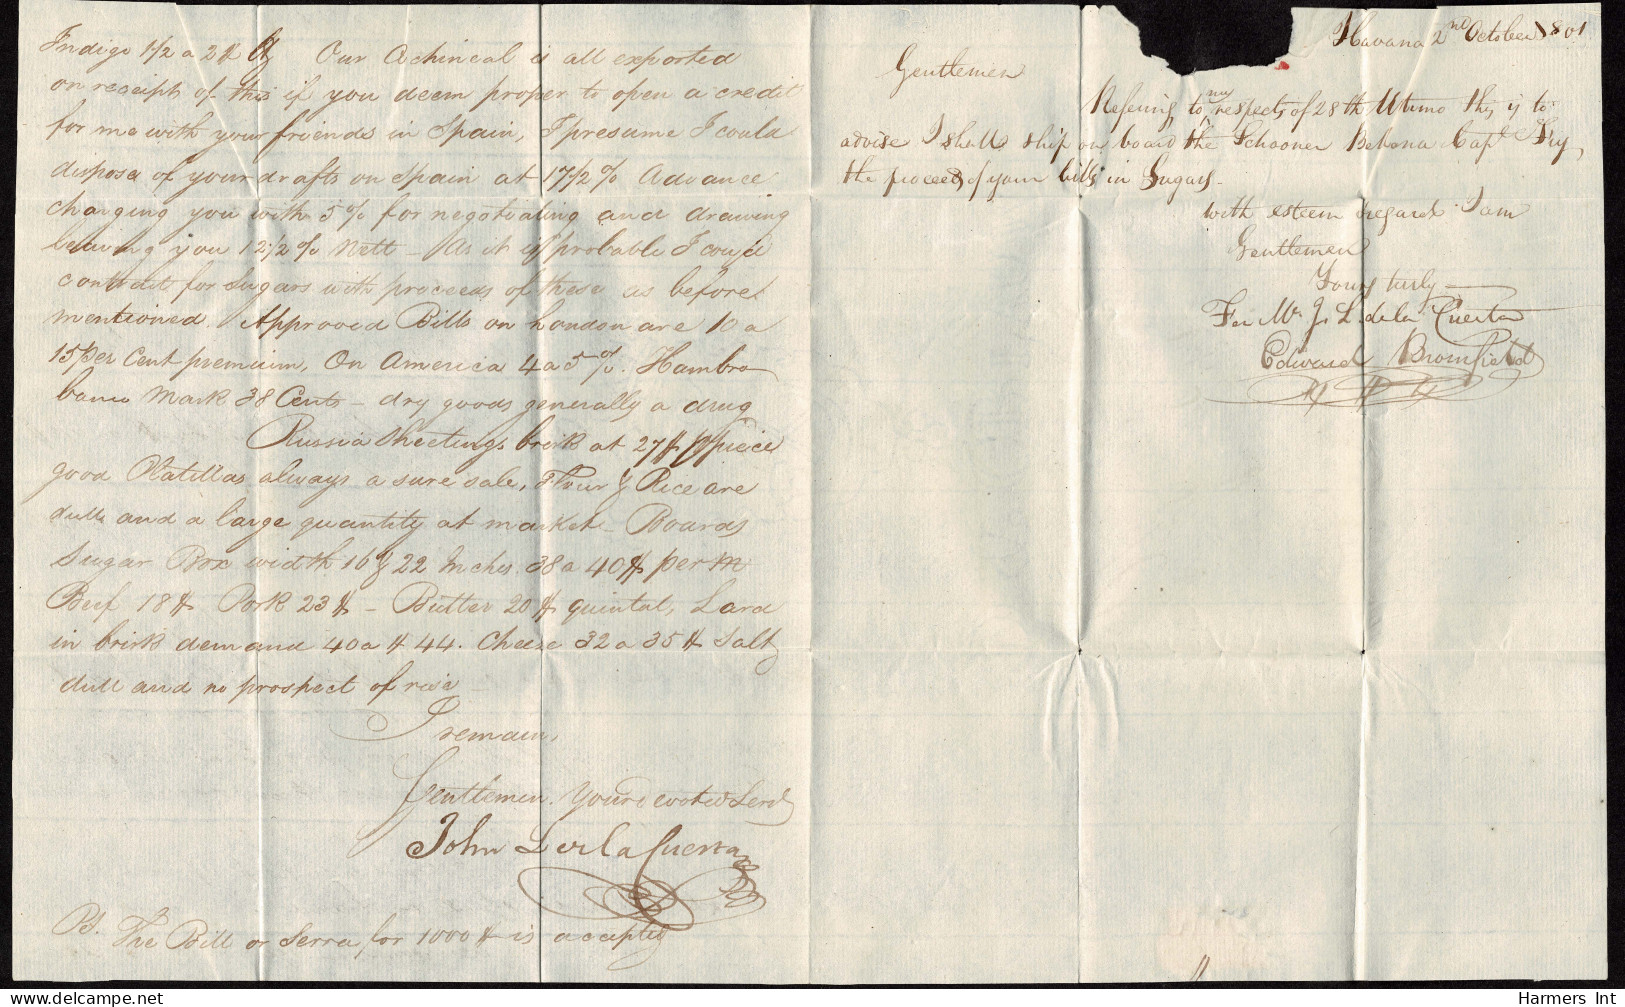 Indigo 1/2 a 2 $ ℔ Our Cochineal is all exported
on receipts of this if you deem proper to open a credit
for me with your friends in Spain, I presume I could
dispose of your drafts on Spain at 17 1/2 % Advance
charging you with 5 % for negotiating and drawing
leaving you 12 1/2 % Nett – As it is probable I could
contract for Sugars with proceeds of these as before
mentioned. Approved Bills on London are 10 a
15 per Cent premium, On America 4 a 5 %. Hambro
banco Mark 38 Cents – dry goods generally a drug
Russia Sheetings brisk at 27 $ p piece
good Platillas always a sure sale, Flour & Rice are
dull and a large quantity at market – Boards
Sugar Box width 16 & 22 Inches 38 a 40 $ per m
Beef 18 $ Pork 23 $ – Butter 20 $ quintal, Lard
in brisk demand 40 a $ 44. Cheese 32 a 35 $ Salt
dull and no prospect of rise –
I remain,
Gentlemen. Your devoted Servt
John L de la Cuesta
PS. The Bill on Serra for 1000 $ is accepted
Havana 2nd October 1801
Gentlemen
Refering to my respects of 28th Ultimo this is to
advise I shall ship on board the Schooner Capt Fry,
the proceeds of your bills in Sugars –
With esteem & regard I am
Gentlemen
Yours truly –
For Mr J. L. de la Cuesta
Edward Bromfield
Harmers Int